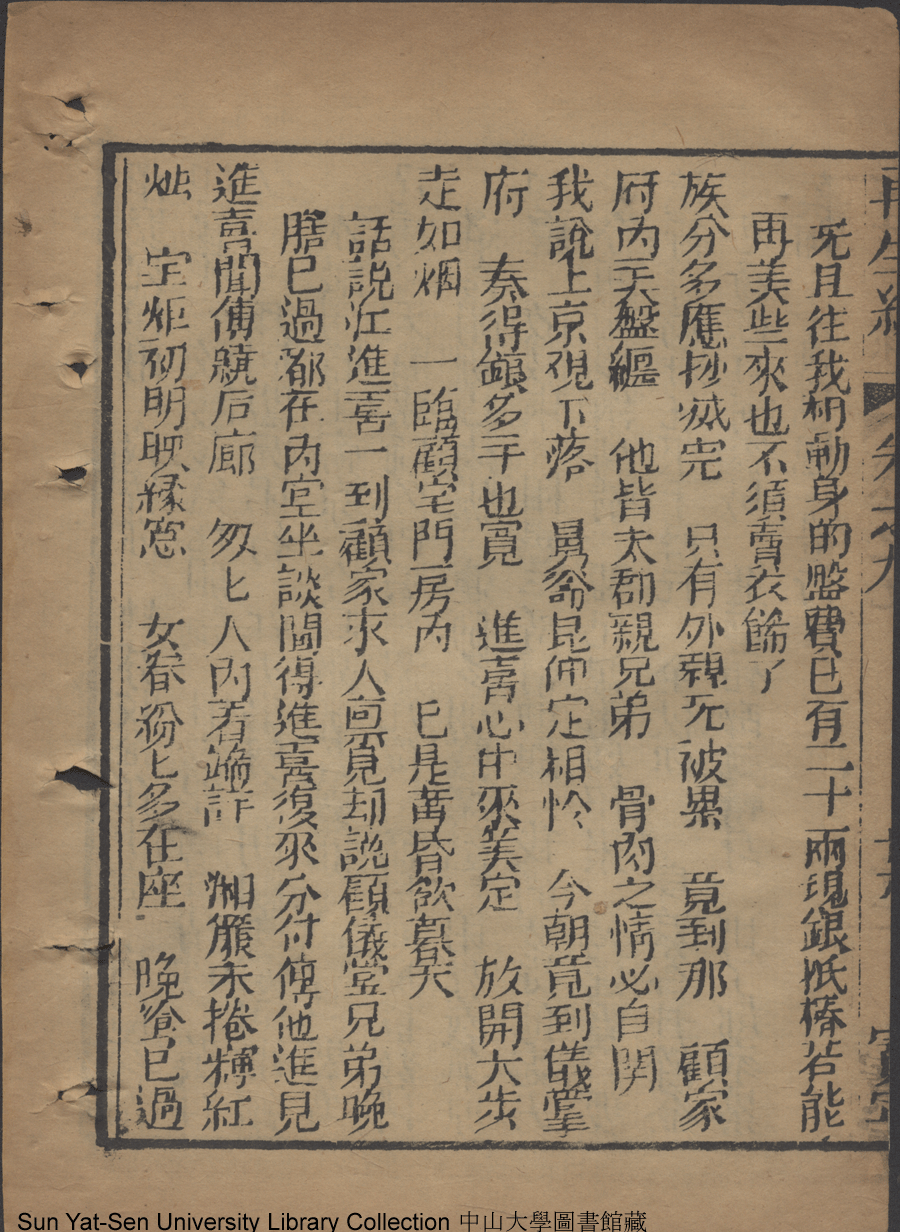 再生緣 卷之九
旡且往我相動身的盤費已有二十兩現銀抵樁若能
再美些來也不須賣衣餙了
族分多應抄㓕完 只有外親旡被累 竟到那 顧家
府內天盤纏 他皆太郡親兄弟 骨肉之情必自関
我說上京覌下落 舅爺昆仲定相怜 今朝竟到儀堂
府 奏得頭多手也寬 進喜心中來美定 放開大步
走如烟 一臨顧宅門房內 已是黃昏欲暮天
話說江進喜一到顧家求人禀見却說顧儀堂兄弟晚
膳已過都在內室坐談聞得進喜復來分付傳他進見
進喜聞傳繞后廊 匆匕人內看端詳 湘簾未捲輝紅
灺 宝炬初明映緑窓 女眷紛匕多在座 晚飡已過
Sun Yat-Sen University Library Collection 中山大學圖書館藏